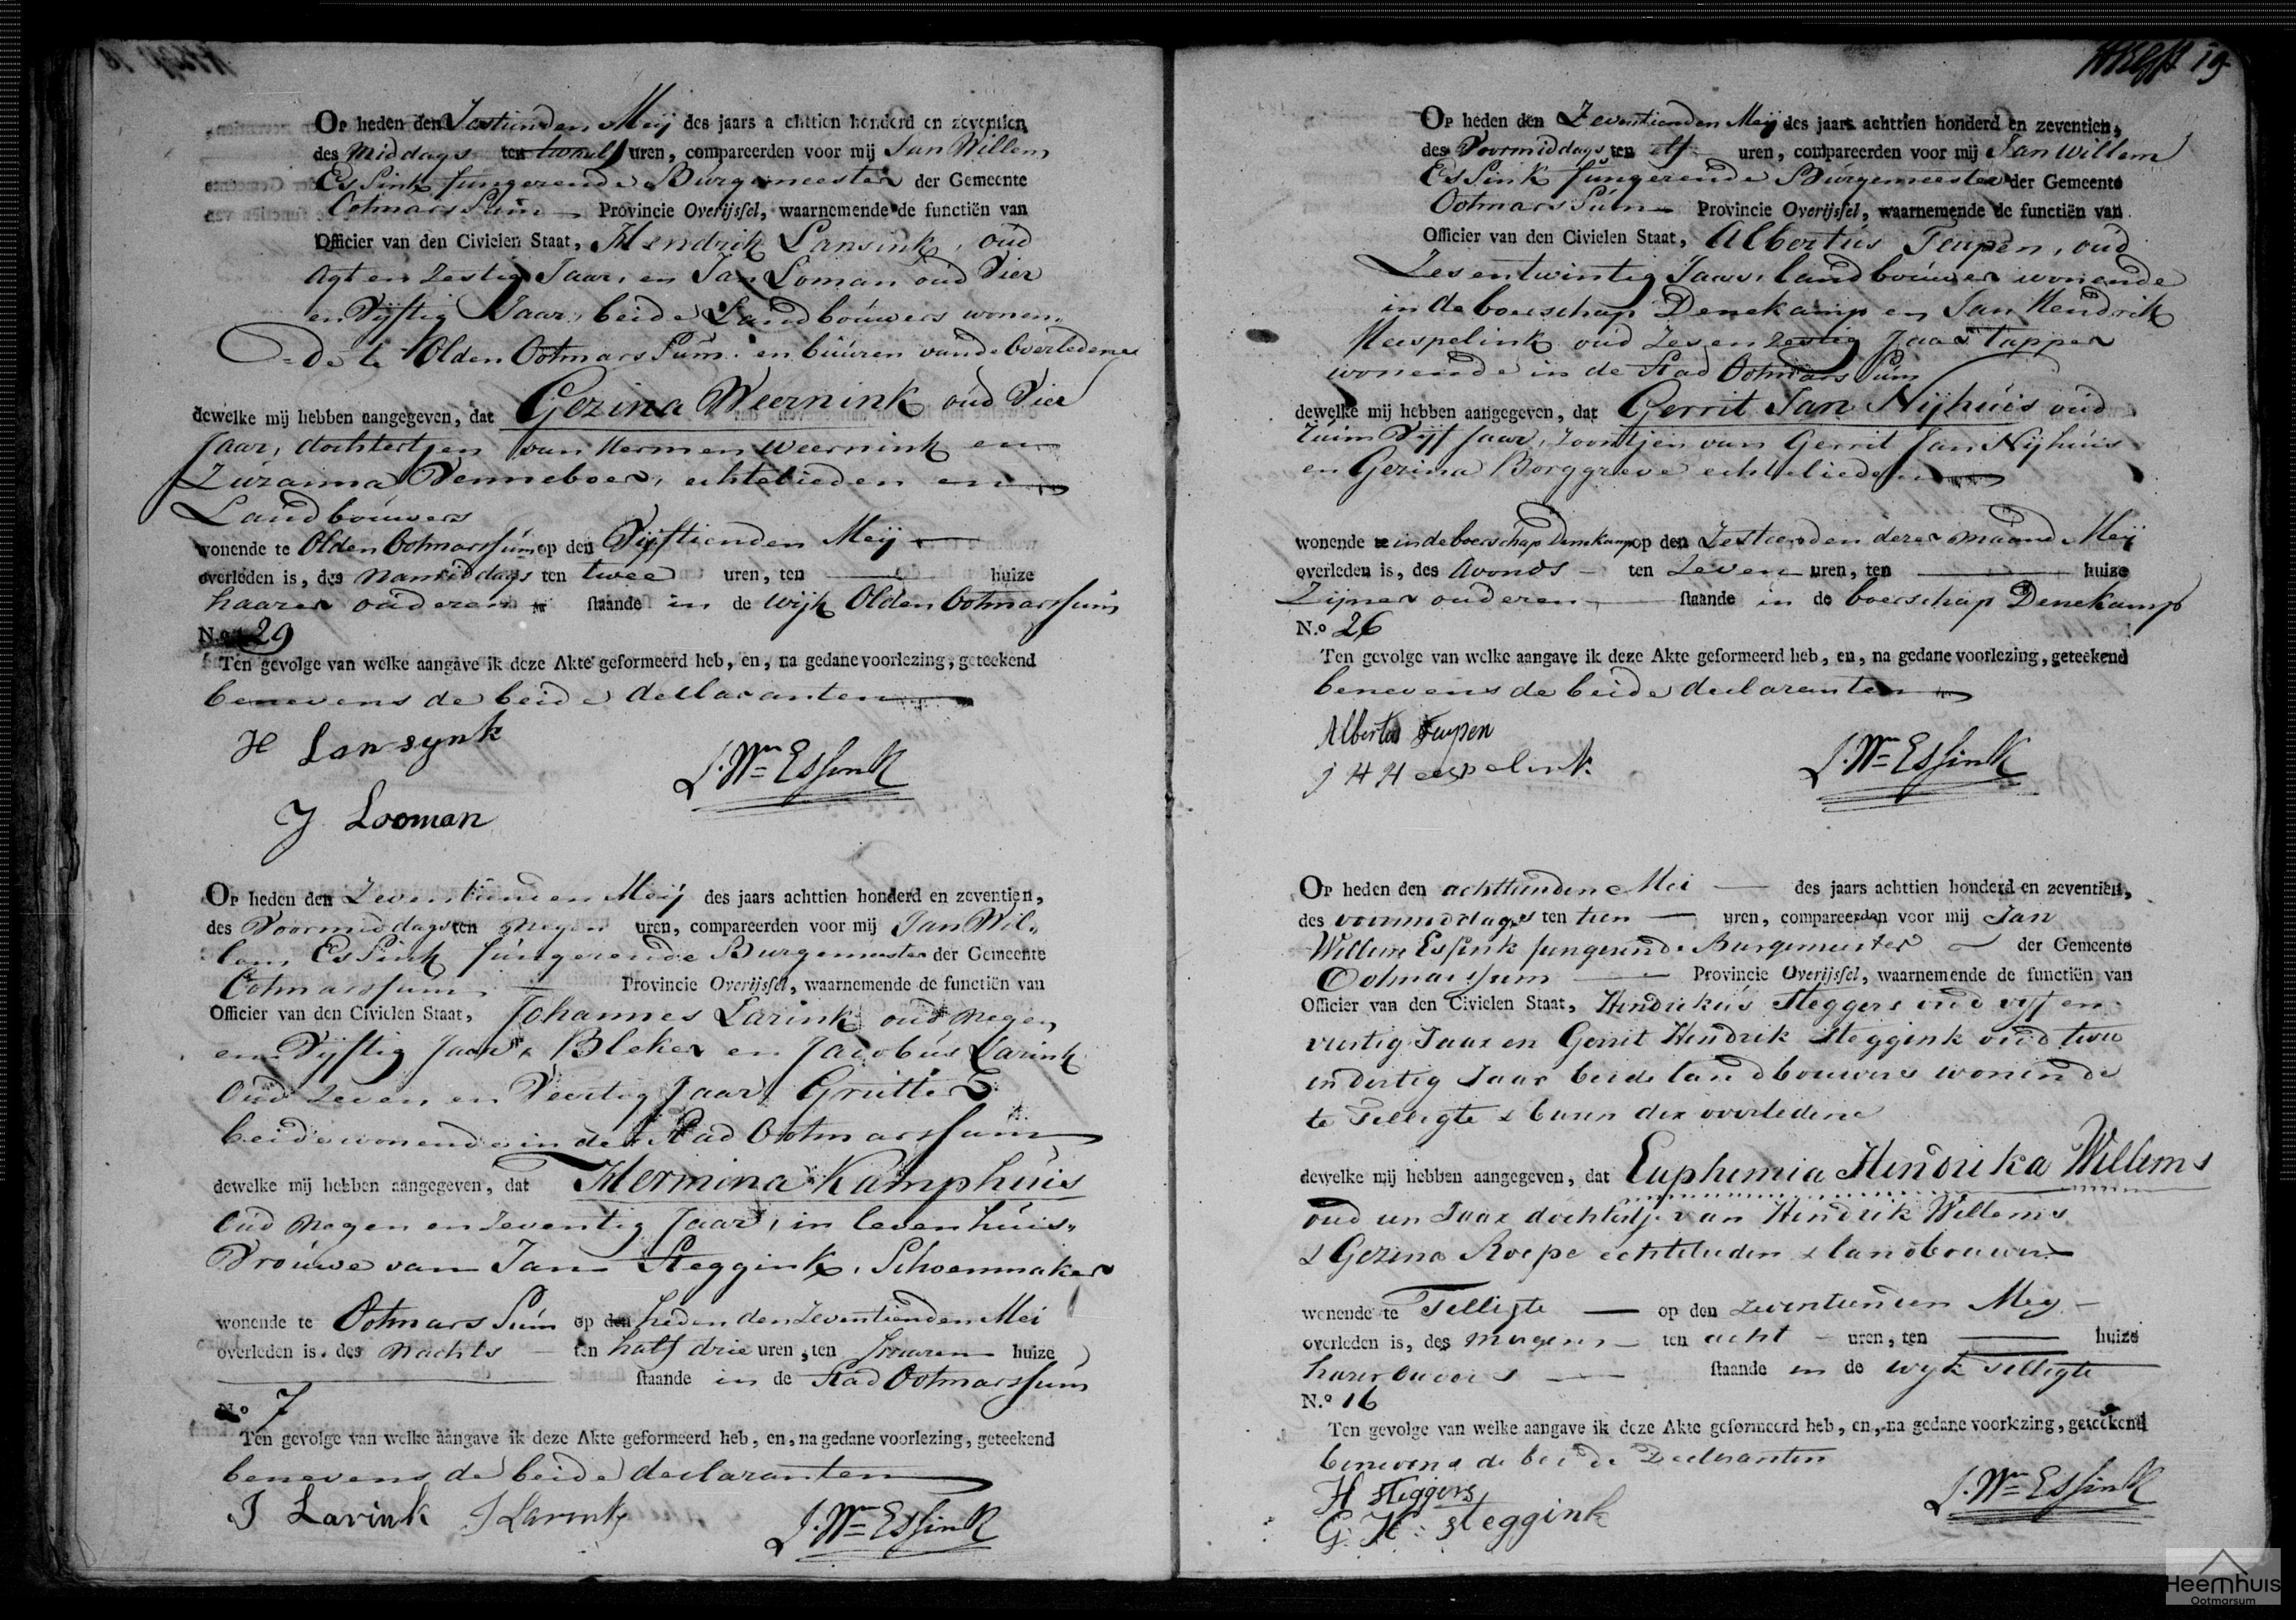 Op heden den Zestienden Meij des jaars achttien honderd en zeventien,
des Middags ten twaalf uren, compareerden voor mij Jan Willem
Essink fungerende Burgemeester der Gemeente
Ootmarssum Provincie Overijssel, waarnemende de functiën van
Officier van den Civielen Staat, Hendrik Lansink, oud
agt en zestig Jaar, en Jan Loman oud Vier
en Vijftig Jaar, beide Landbouwers wonen„
„de te Olden Ootmarssum en buuren van de overledene
dewelke mij hebben aangegeven, dat Gezina Weernink oud Vier
Jaar, dochtertjen van Hermen Weernink en
Zuzanna Venneboer, echtelieden en
Landbouwers
wonende te Olden Ootmarssum op den Vijftienden Meij
overleden is, des Namiddags ten twee uren, ten huize
haarer ouderen staande in de wijk Olden Ootmarssum
N.o 29
Ten gevolge van welke aangave ik deze Akte geformeerd heb, en, na gedane voorlezing, geteekend
benevens de beide declaranten
H Lansynk
J. Wm Essink
J Looman
Op heden den Zeventienden Meij des jaars achttien honderd en zeventien,
des Voormiddags ten Negen uren, compareerden voor mij Jan Wil„
lem Essink fungerende Burgemeester der Gemeente
Ootmarssum Provincie Overijssel, waarnemende de functiën van
Officier van den Civielen Staat, Johannes Larink oud Negen
en Vijftig Jaar, Bleker en Jacobus Larink
oud Zeven en Veertig Jaar, Grutter
beide wonende in de Stad Ootmarssum
dewelke mij hebben aangegeven, dat Hermina Kamphuis
oud Negen en Zeventig Jaar, in leven huis„
Vrouwe van Jan Steggink, Schoenmaker
wonende te Ootmarssum op den heden den Zeventienden Mei
overleden is, des Nachts ten half drie uren, ten haaren huize
staande in de Stad Ootmarssum
N.o 7
Ten gevolge van welke aangave ik deze Akte geformeerd heb, en, na gedane voorlezing, geteekend
benevens de beide declaranten
J Larink J Larink J. Wm Essink
19
Op heden den Zeventienden Meij des jaars achttien honderd en zeventien,
des Voormiddags ten elf uren, compareerden voor mij Jan Willem
Essink fungerende Burgemeester der Gemeente
Ootmarssum Provincie Overijssel, waarnemende de functiën van
Officier van den Civielen Staat, Albertus Teupen, oud
Zes en twintig Jaar, landbouwer wonende
in de boerschap Denekamp en Jan Hendrik
Heespelink oud Zes en zestig Jaar tapper
wonende in de Stad Ootmarssum
dewelke mij hebben aangegeven, dat Gerrit Jan Nijhuis oud
ruim Vijf Jaar, Zoontjen van Gerrit Jan Nijhuis
en Gezina Borggreve echtelieden
wonende te in de boerschap Denekamp op den Zestienden dezer maand Meij
overleden is, des Avonds ten Zeven uren, ten huize
Zijner ouderen staande in de boerschap Denekamp
N.o 26
Ten gevolge van welke aangave ik deze Akte geformeerd heb, en, na gedane voorlezing, geteekend
benevens de beide declaranten
Albertus Teupen
J H Heespelink J. Wm Essink
Op heden den achttienden Mei des jaars achttien honderd en zeventien,
des voormiddags ten tien uren, compareerden voor mij Jan
Willem Essink fungerende Burgemeester der Gemeente
Ootmarssum Provincie Overijssel, waarnemende de functiën van
Officier van den Civielen Staat, Hendrikus Steggers oud vijf en
veertig Jaar en Gerrit Hendrik Steggink oud twee
en dertig Jaar beide landbouwers wonende
te Tilligte & buren der overledene
dewelke mij hebben aangegeven, dat Euphemia Hendrika Willems
oud een Jaar dochtertje van Hendrik Willems
& Gezina Roepe echtelieden & landbouwers
wonende te Tilligte op den zeventienden Mey
overleden is, des morgens ten acht uren, ten huize
harer ouders staande in de wyk Tilligte
N.o 16
Ten gevolge van welke aangave ik deze Akte geformeerd heb, en, na gedane voorlezing, geteekend
benevens de beide Declaranten
H Steggers J. Wm Essink
G: H: Steggink
Heemhuis
Ootmarsum